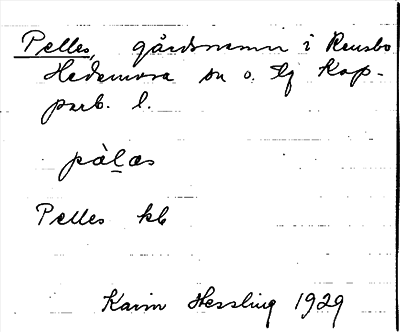 Pelles, gårdsnamn i Rensbo
Hedemora sn o. tg Kop-
parb. l.
pàlas
Pelles kb
Karin Hessling 1929